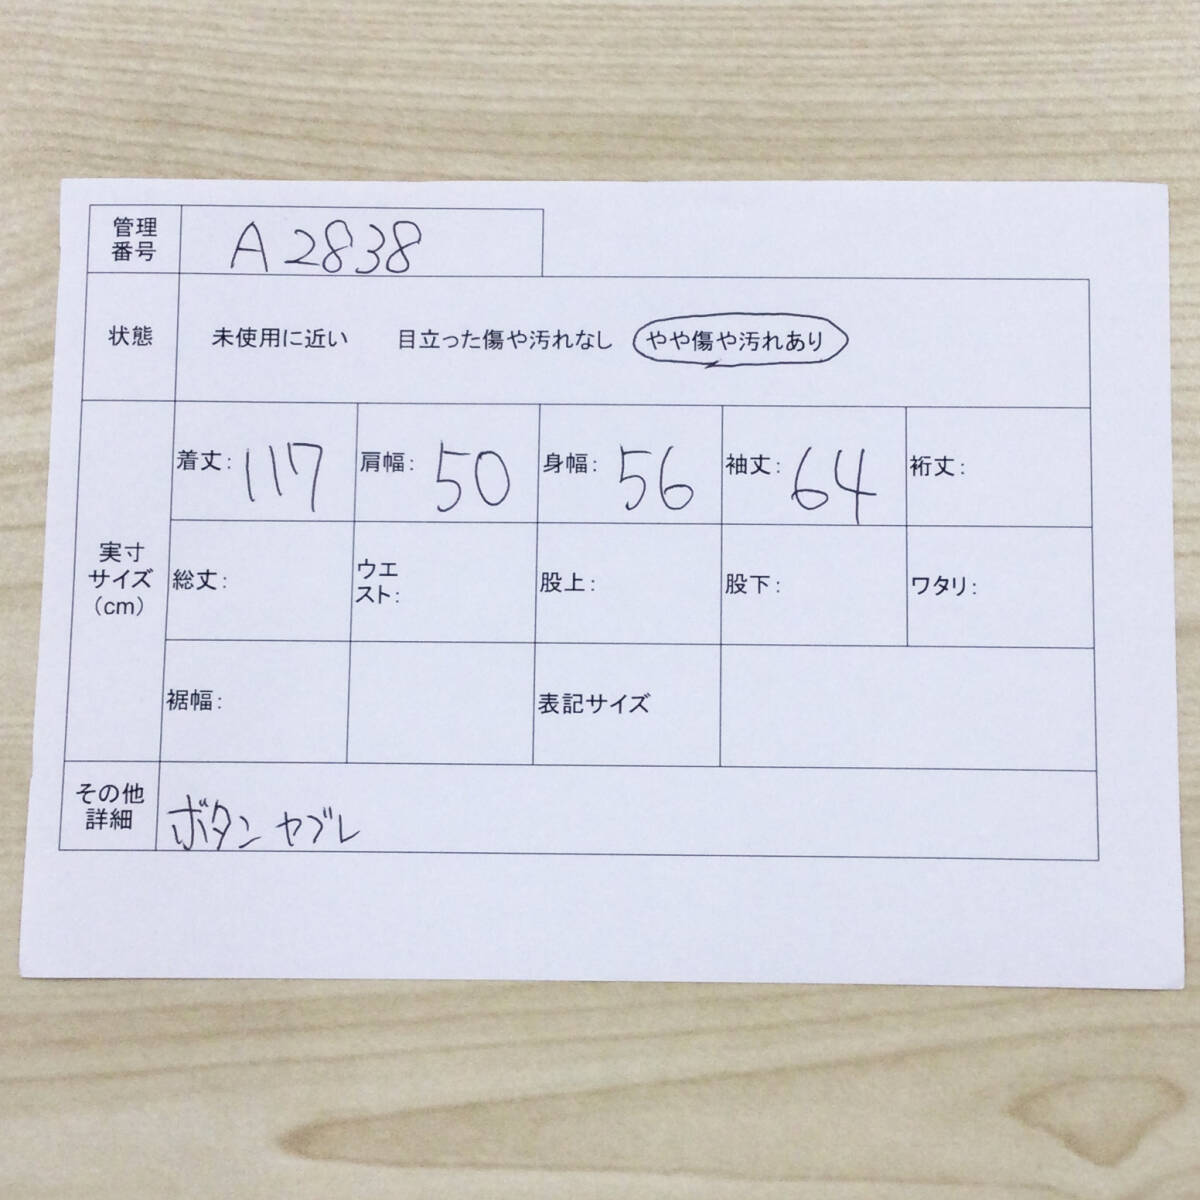 管理
番号
A2838
状態
未使用に近い 目立った傷や汚れなし やや傷や汚れあり
実寸
サイズ
(cm)
着丈: 117
肩幅: 50
身幅: 56
袖丈: 64
裄丈:
総丈:
ウエ
スト:
股上:
股下:
ワタリ:
裾幅:
表記サイズ
その他
詳細
ボタン ヤブレ